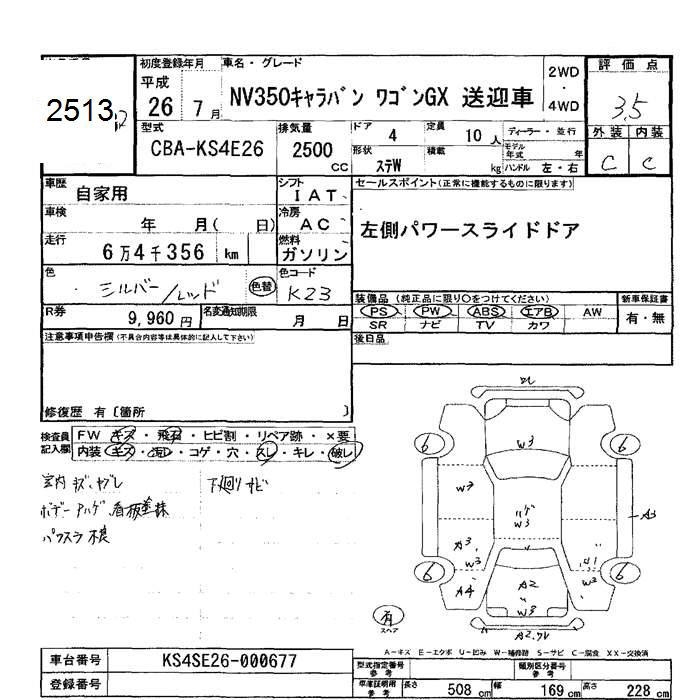 2513
初度登録年月
平成
26 7 月
車名・グレード
NV350キャラバン ワゴンGX 送迎車
2WD
・
4WD
評価点
3.5
外装 内装
C C
型式
CBA-KS4E26
排気量
2500
CC
ドア 4
定員 10 人
形状 ステW
積載 kg
ディーラー・並行
モデル年式 年
ハンドル 左・右
車歴
自家用
シフト
I A T
セールスポイント(正常に機能するものに限ります)
左側パワースライドドア
車検
年 月( 日)
冷房
A C
走行
6万4千356 km
燃料
ガソリン
色
シルバー/レッド
色替
色コード
K23
R券
9,960 円
名変通知期限
月 日
装備品(純正品に限り○をつけてください)
PS PW ABS エアB AW
SR ナビ TV カワ
新車保証書
有・無
後日品
注意事項申告欄(不具合内容等は具体的に記入して下さい)
修復歴 有〔箇所 〕
検査員
記入欄
FW キズ・飛石・ヒビ割・リペア跡・×要
内装 キズ・コゲ・穴・スレ・キレ・破レ
室内 キズ、ヤブレ
下廻り サビ
ボデー アハゲ、看板塗抹
パワスラ 不良
6 6
W3
W3
ハゲ
W3
A3
A3
W3
A4
U1
W3
A2
W3
6 6
有
スペア
A2.
A-キズ E-エクボ U-凹み W-補修跡 S-サビ C-腐食 XX-交換済
車台番号
KS4SE26-000677
登録番号
型式指定番号
参考
類別区分番号
参考
車庫証明用
参考
長さ 508 cm
幅 169 cm
高さ 228 cm